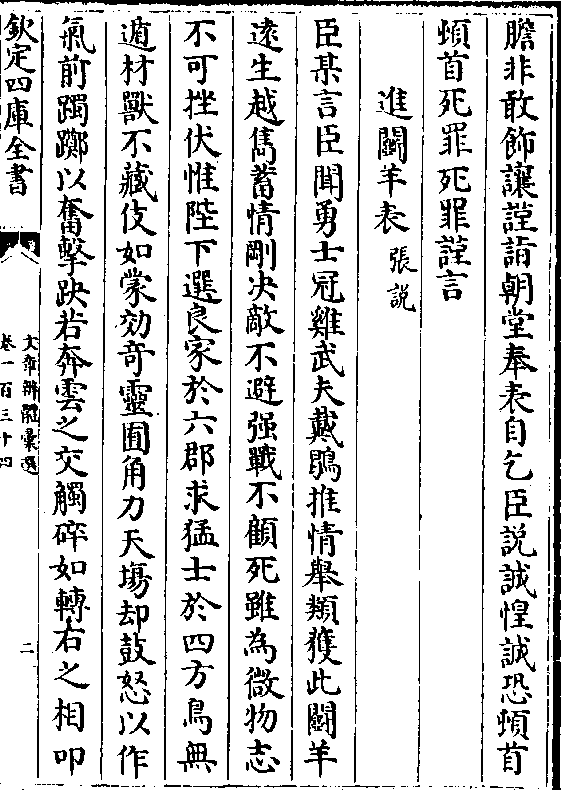 膽非敢飾讓謹詣朝堂奉表自乞臣説誠惶誠恐頓首
頓首死罪死罪謹言
進鬭羊表 張説
臣某言臣聞勇士冠雞武夫戴鶡推情舉類獲此鬭羊
逺生越雋蓄情剛决敵不避强戰不顧死雖為微物志
不可挫伏惟陛下選良家於六郡求猛士於四方鳥無
遁材獸不藏伎如蒙効竒靈囿角力天塲却鼓怒以作
氣前躑躅以奮擊趹若奔雲之交觸碎如轉右之相叩
欽定四庫全書
文章辨體彙選
卷一百三十四
二